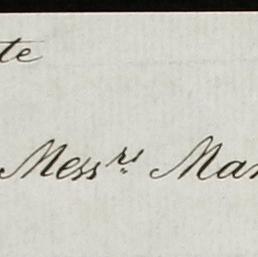 te
Messrs. Mar